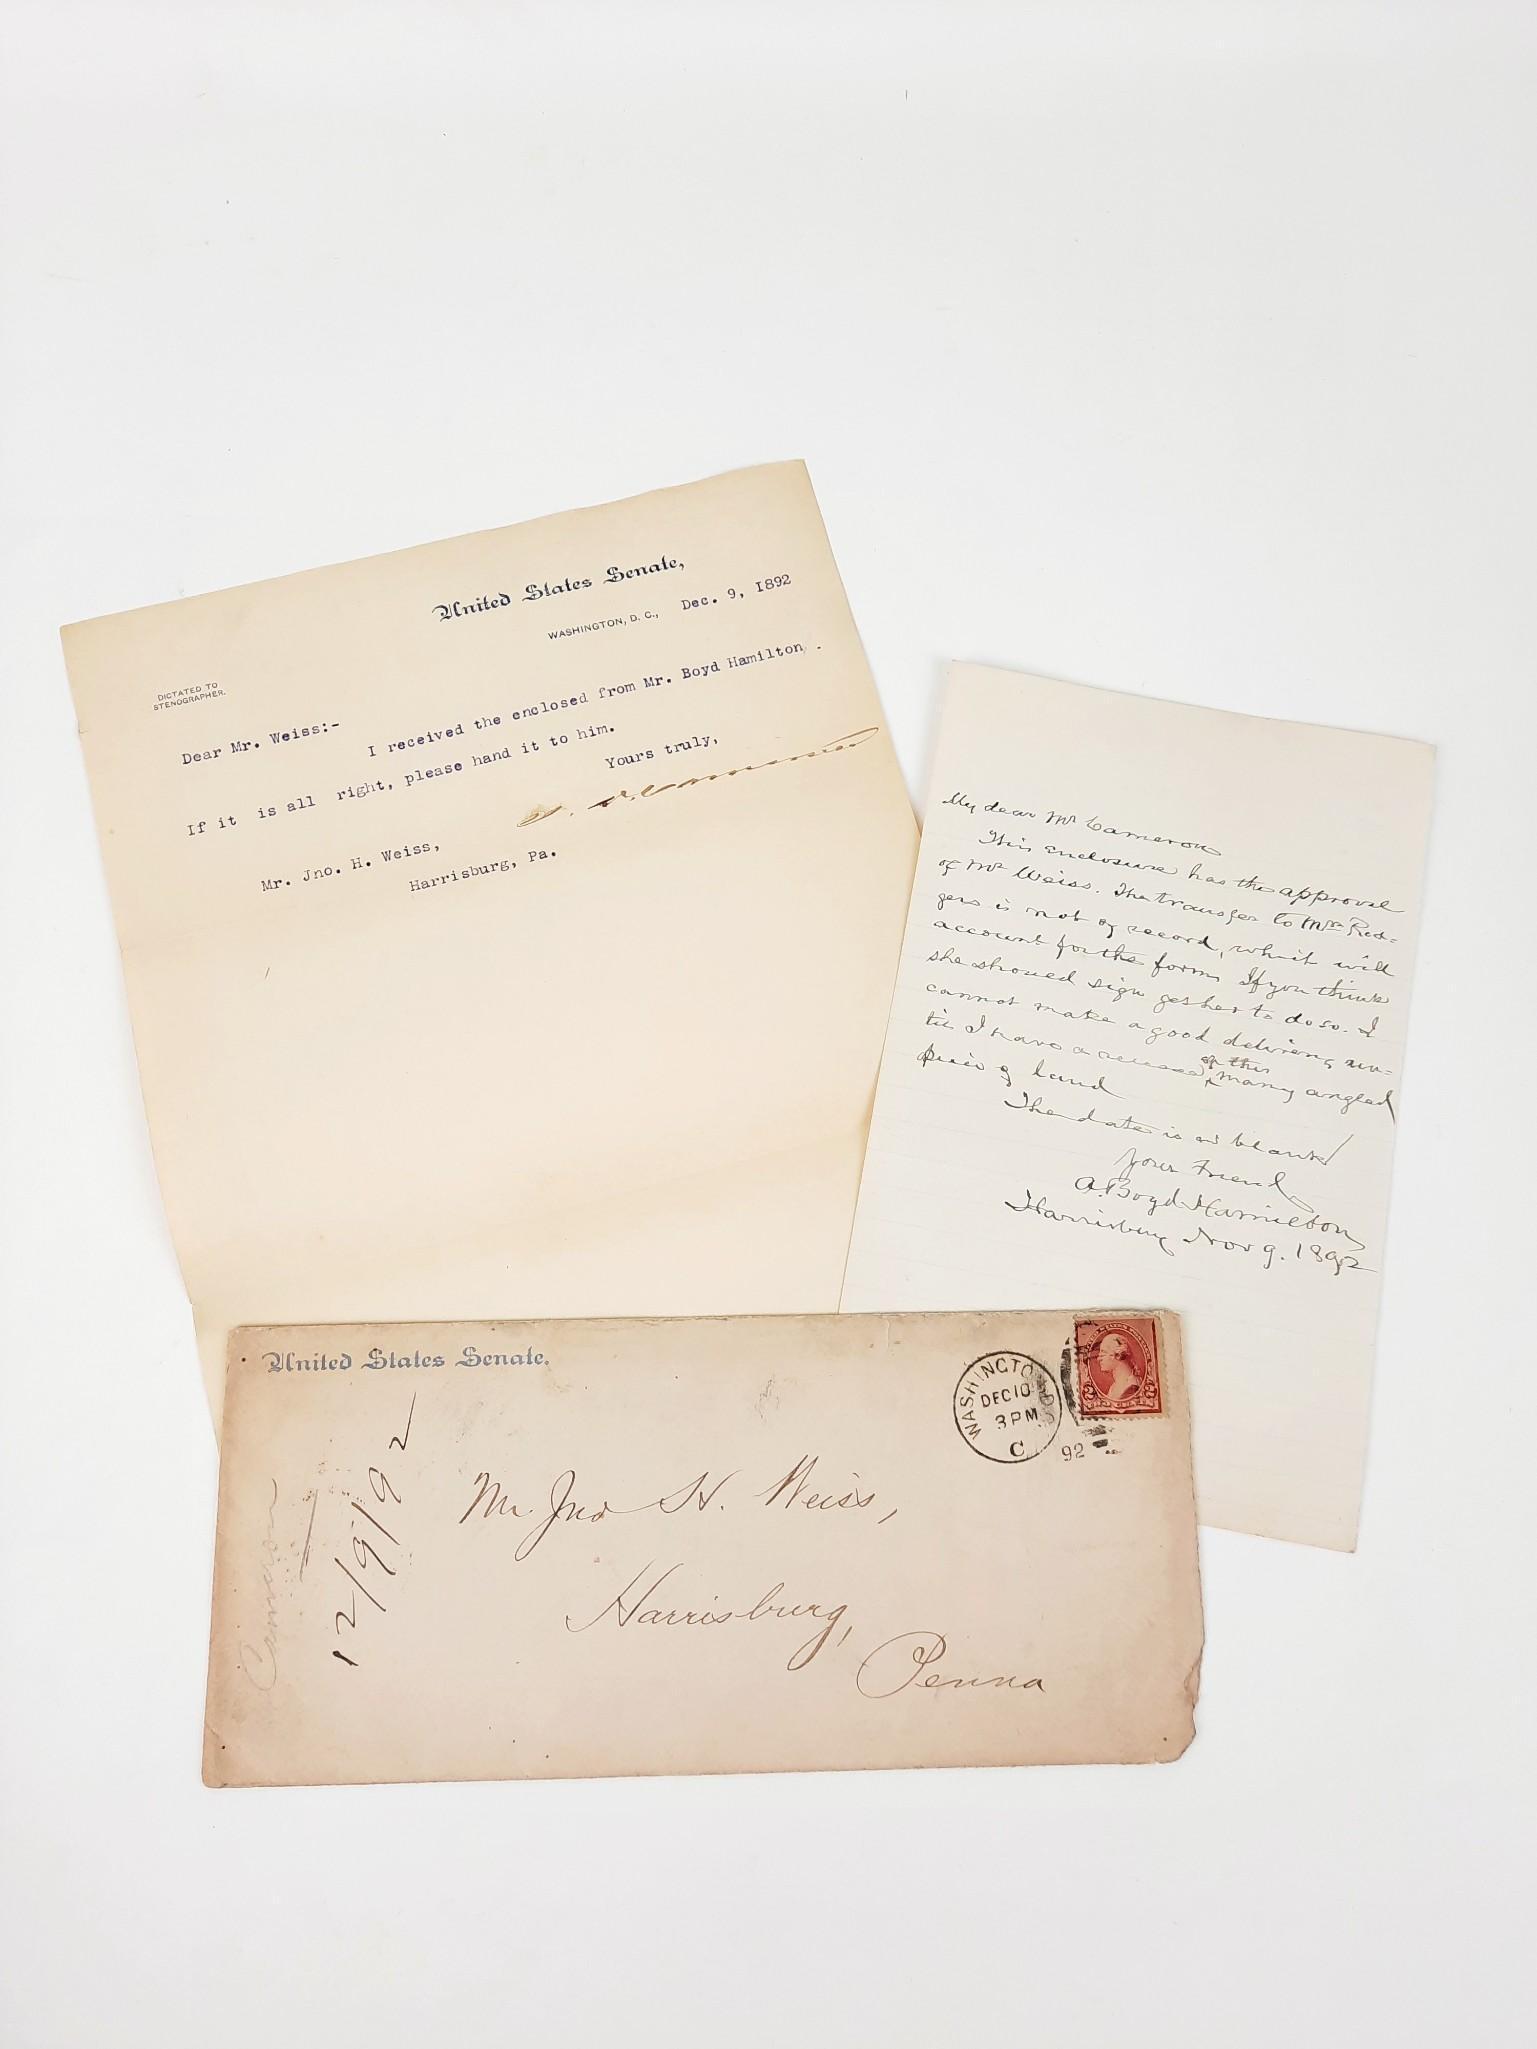 United States Senate,
WASHINGTON, D. C., Dec. 9, 1892
DICTATED TO
STENOGRAPHER.
Dear Mr. Weiss:-
I received the enclosed from Mr. Boyd Hamilton .
If it is all right, please hand it to him.
Yours truly,
J. D. Cameron
Mr. Jno. H. Weiss,
Harrisburg, Pa.
My dear Mr Cameron
This enclosure has the approval
of Mr Weiss. The transfer to Mrs Rod-
gers is not of record, which will
account for the form. If you think
she should sign get her to do so. I
cannot make a good delivery un-
til I have a release of this many angled
piece of land
The date is in blank
Your Friend
A. Boyd Hamilton
Harrisburg Nov 9. 1892
United States Senate.
WASHINGTON, D.C.
DEC 10
3 PM
C
92
12/9/92
Cameron
Mr. Jno H. Weiss,
Harrisburg,
Penna